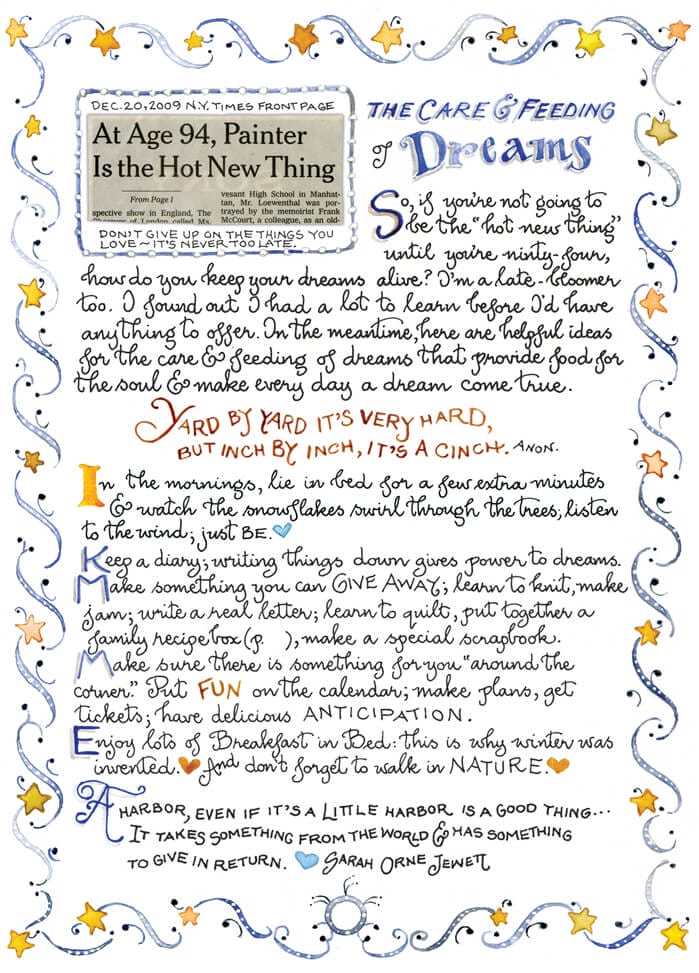 DEC. 20, 2009 N.Y. TIMES FRONT PAGE
At Age 94, Painter
Is the Hot New Thing
From Page 1
spective show in England, The
Observer of London called Ms.
vesant High School in Manhat-
tan, Mr. Loewenthal was por-
trayed by the memoirist Frank
McCourt, a colleague, as an old-
DON'T GIVE UP ON THE THINGS YOU
LOVE ~ IT'S NEVER TOO LATE.
THE CARE & FEEDING
OF Dreams
So, if you're not going to
be the "hot new thing"
until you're ninty-four,
how do you keep your dreams alive? I'm a late-bloomer
too. I found out I had a lot to learn before I'd have
anything to offer. In the meantime, here are helpful ideas
for the care & feeding of dreams that provide food for
the soul & make every day a dream come true.
YARD BY YARD IT'S VERY HARD,
BUT INCH BY INCH, IT'S A CINCH. ANON.
In the mornings, lie in bed for a few extra minutes
& watch the snowflakes swirl through the trees; listen
to the wind; just BE.
Keep a diary; writing things down gives power to dreams.
Make something you can GIVE AWAY; learn to knit, make
jam; write a real letter; learn to quilt, put together a
family recipe box (p. ), make a special scrapbook.
Make sure there is something for you "around the
corner." Put FUN on the calendar; make plans, get
tickets; have delicious ANTICIPATION.
Enjoy lots of Breakfast in Bed: this is why winter was
invented. And don't forget to walk in NATURE.
A HARBOR, EVEN IF IT'S A LITTLE HARBOR IS A GOOD THING...
IT TAKES SOMETHING FROM THE WORLD & HAS SOMETHING
TO GIVE IN RETURN. SARAH ORNE JEWETT